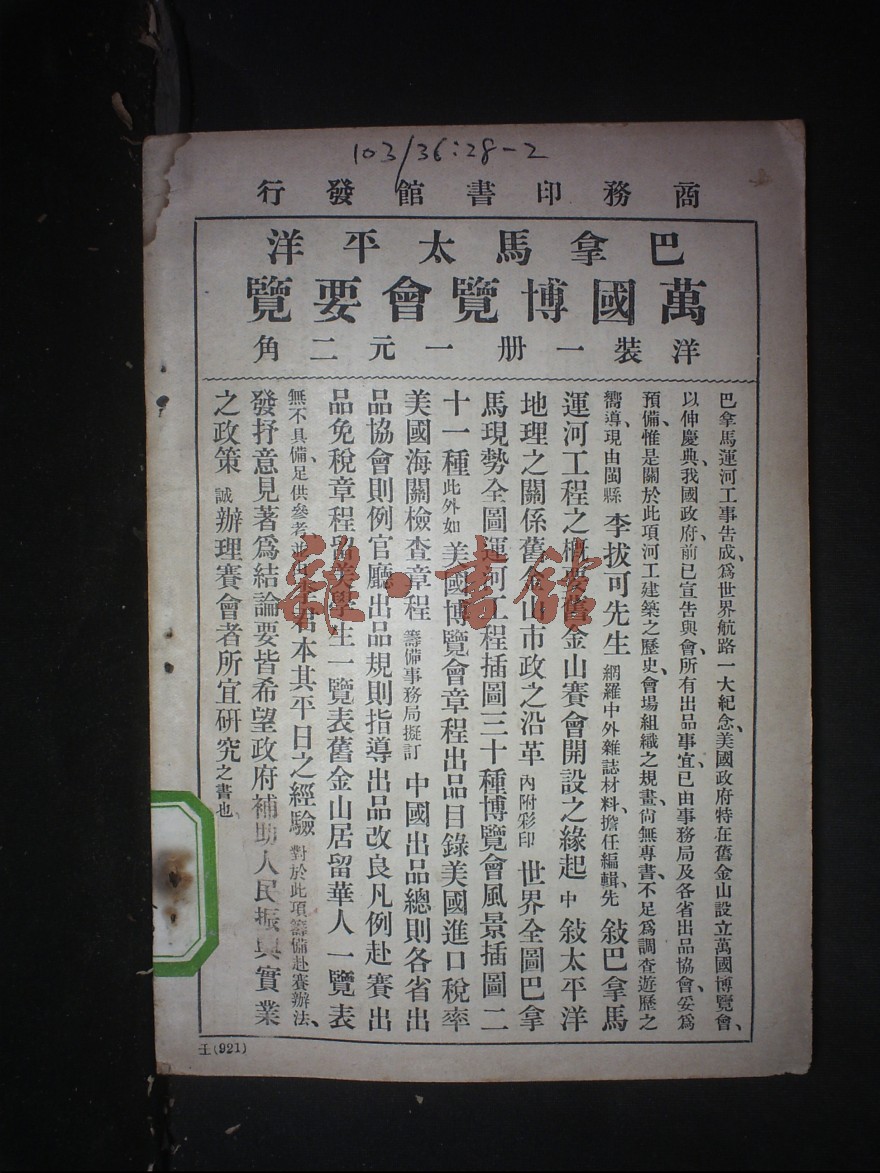 103/36:28-2
商務印書館發行
巴拿馬太平洋
萬國博覽會要覽
洋裝一册一元二角
巴拿馬運河工事告成、爲世界航路一大紀念、美國政府特在舊金山設立萬國博覽會、
以伸慶典、我國政府前已宣告與會、所有出品事宜、已由事務局及各省出品協會妥爲
預備、惟是關於此項河工建築之歷史、會場組織之規畫、尙無專書、不足爲調查遊歷之
嚮導、現由閩縣 李拔可先生 網羅中外雜誌材料、擔任編輯、先 敍巴拿馬
運河工程之概要舊金山賽會開設之緣起 中 敍太平洋
地理之關係舊金山市政之沿革 內附彩印 世界全圖巴拿
馬現勢全圖運河工程插圖三十種博覽會風景插圖二
十一種 此外如 美國博覽會章程出品目錄美國進口稅率
美國海關檢查章程 籌備事務局擬訂 中國出品總則各省出
品協會則例官廳出品規則指導出品改良凡例赴賽出
品免稅章程留美學生一覽表舊金山居留華人一覽表
無不具備、足供參考、並由李君本其平日之經驗 對於此項籌備赴賽辦法、
發抒意見著爲結論要皆希望政府補助人民振興實業
之政策 誠辦理賽會者所宜研究之書也
王(921)
雜·書館